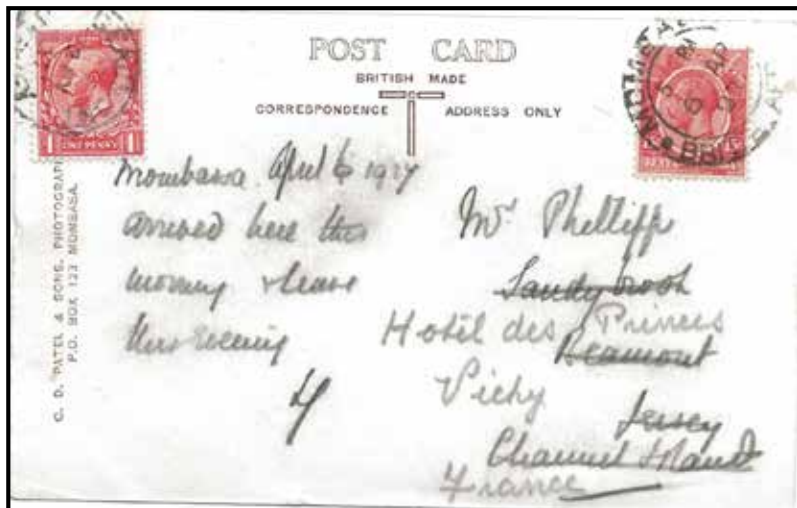 POST CARD
BRITISH MADE
CORRESPONDENCE ADDRESS ONLY
C. D. PATEL & SONS, PHOTOGRAPH
P.O. BOX 123 MOMBASA.
1 ONE PENNY 1
Mombassa April 6 1927
arrived here this
morning & leave
this Evening
Mrs Phillipps
Sandybrook
Hotel des Princes
Beaumont
Vichy
Jersey
Channel Island
France